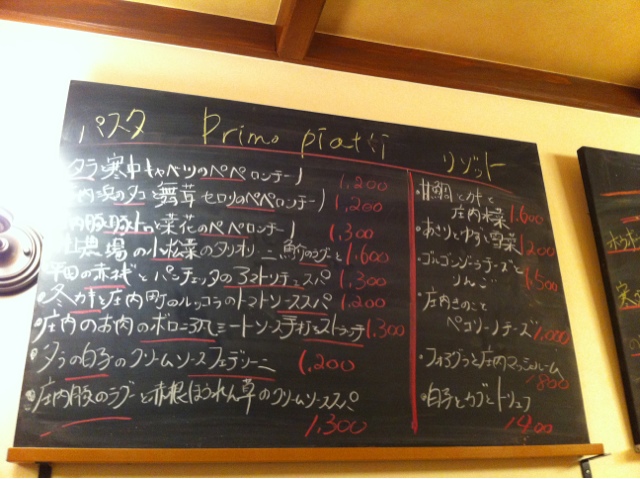 パスタ Primo piatti リゾット
タラと寒中キャベツのペペロンチーノ 1,200
内浜のタコと舞茸セロリのペペロンチーノ 1,200
と菜花のペペロンチーノ 1,300
農場の小松菜のタリオリーニ 1,600
平田の赤ネギとパンチェッタの 1,300
・冬カキと庄内町のルッコラのトマトソーススパ 1,200
・庄内のお肉のボロニア風ミートソース手打ち 1,300
・タラの白子のクリームソースフェデリーニ 1,200
・庄内豚のラグーと赤根ほうれん草のクリームソーススパ
1,300
・甘鯛とカキと
庄内水菜 1,600
・あさりとゆずと雪菜
1200
・ゴルゴンゾーラチーズと
りんご 1,500
・庄内きのこと
ペコリーノチーズ 1,000
・フォアグラと庄内マッシュルーム
1800
・白子とカブとトリュフ
1400